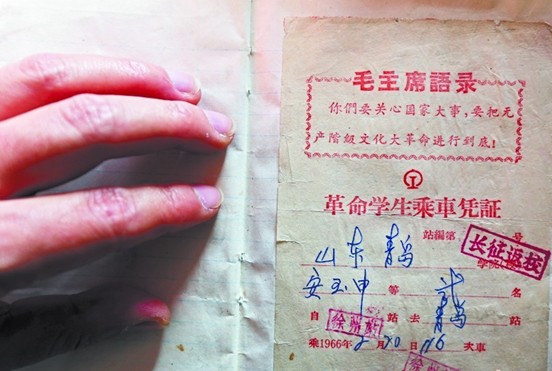 毛主席語录
你們要关心国家大事，要把无
产阶級文化大革命进行到底！
革命学生乘車凭証
站編第 号
长征返校
山东 青岛 学院
安玉申 等 名
自 站去 青岛 站
乘1966年 月20日 次車